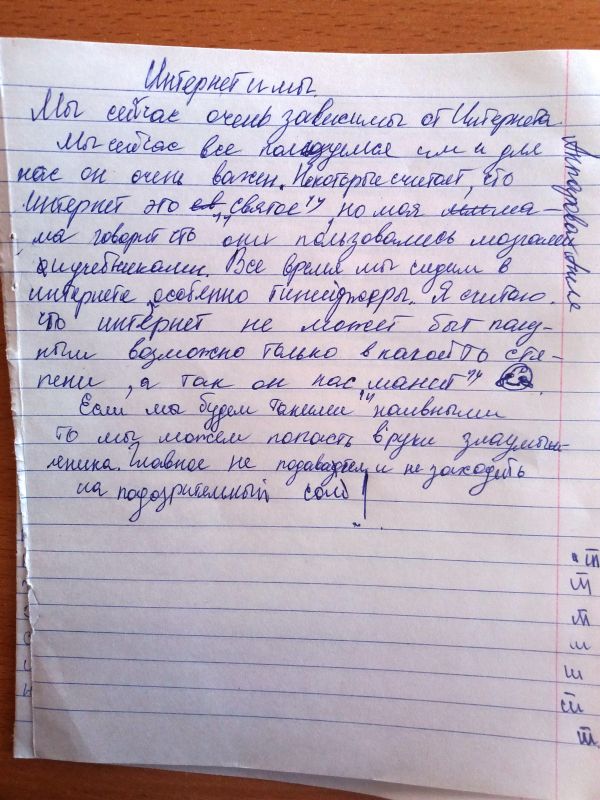 Интернет и мы
Мы сейчас очень зависимы от Интернета
Мы сейчас все пользуемся им и для
нас он очень важен. Некоторые считает, что
Интернет это "святое", но моя ма-
ма говорит сто они пользовались мозгами
и учебниками. Все время мы сидим в
интернете, особенно тинейджеры. Я считаю.
что интернет не может быт полу-
ным возможно только в какой то стя-
пени, а так он нас "манит"
Если мы будем такими "наивными"
то мы можем попасть в руки злаумыш-
леника. Главное не подаваться и не заходить
на подозрительный